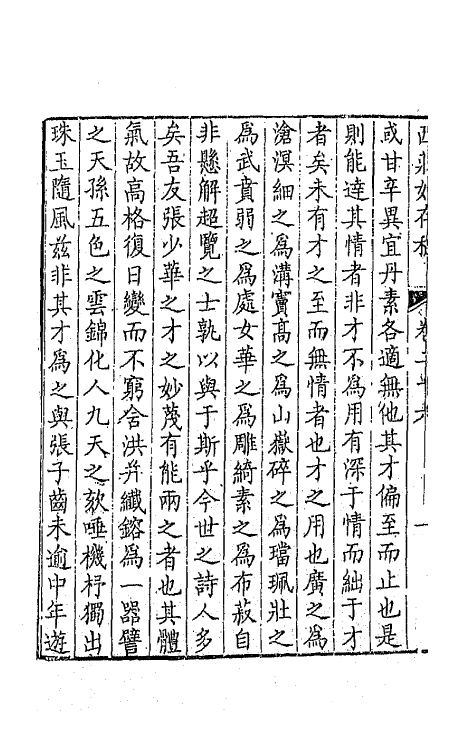 西莊始存稿 卷二十六 一
或甘辛異宜丹素各適無他其才偏至而止也是
則能達其情者非才不爲用有深于情而絀于才
者矣未有才之至而無情者也才之用也廣之爲
滄溟細之爲溝竇高之爲山嶽碎之爲璫珮壯之
爲武賁弱之爲處女華之爲雕綺素之爲布菽自
非懸解超覽之士孰以與于斯乎今世之詩人多
矣吾友張少華之才之妙蔑有能兩之者也其體
氣故高格復日變而不窮舍洪并纖鎔爲一器譬
之天孫五色之雲錦化人九天之欬唾機杼獨出
珠玉隨風兹非其才爲之與張子齒未逾中年遊